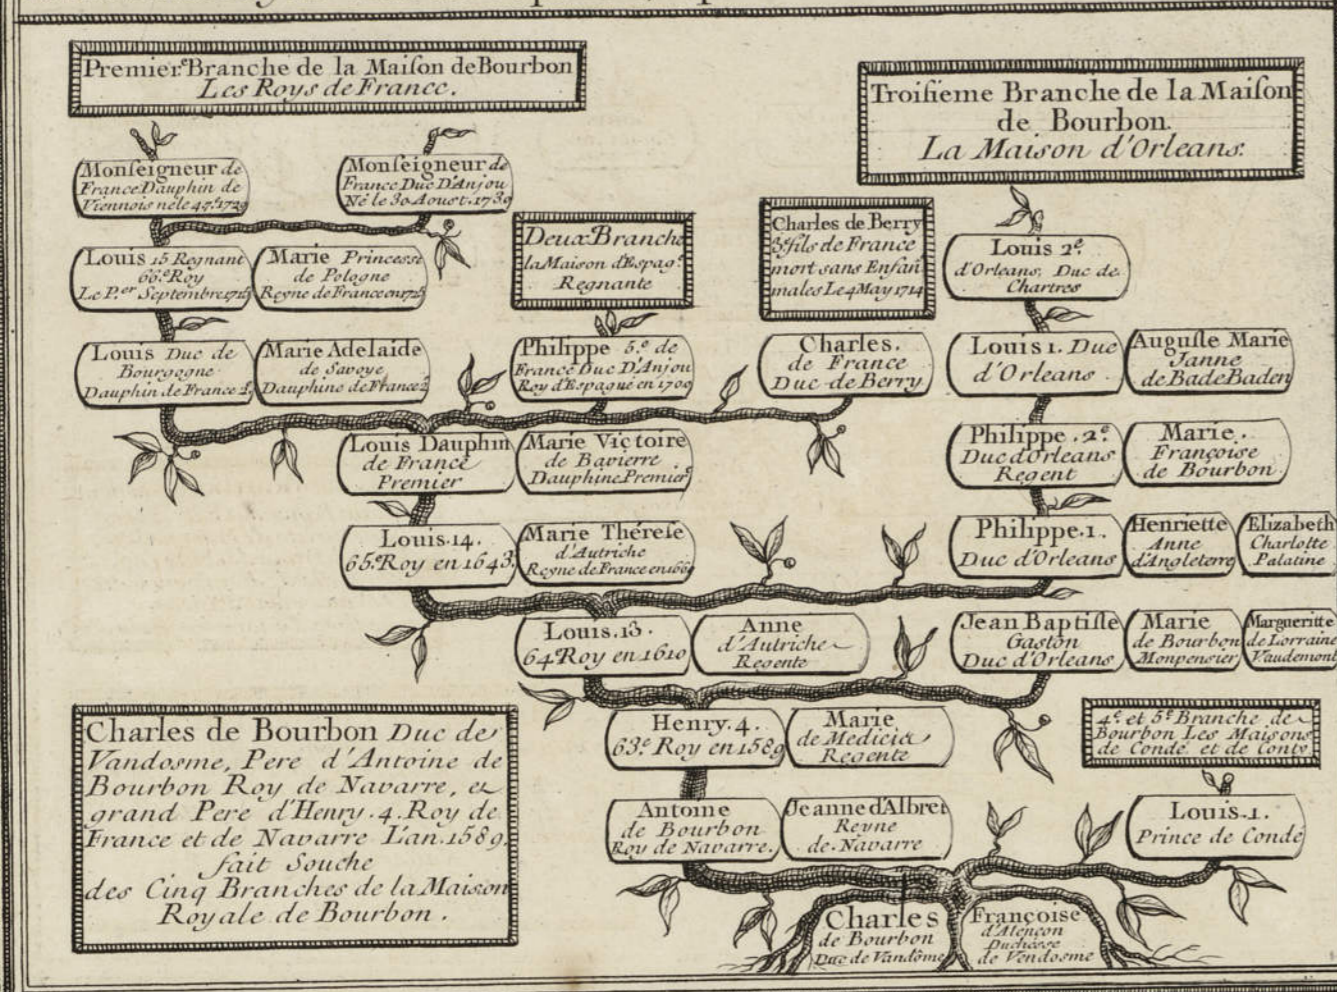 Premier.e Branche de la Maiſon de Bourbon
Les Roys de France.
Troiſieme Branche de la Maiſon
de Bourbon.
La Maison d'Orleans.
Monſeigneur de
France Dauphin de
Viennois né le
Monſeigneur de
France Duc D'Anjou
Né le 30 Aoust. 1730
Deux.e Branche
la Maison d'Espag.e
Regnante
Charles de Berry
3.e fils de France
mort sans Enfan
males Le 4 May 1714
Louis 2.e
d'Orleans, Duc de
Chartres
Louis 15 Regnant
66.e Roy
Le P.er Septembre 1715
Marie Princesse
de Pologne
Reyne de France en 1725
Louis Duc de
Bourgogne
Dauphin de France 2.
Marie Adelaide
de Savoye
Dauphine de France 2
Philippe 5.e de
France Duc D'Anjou
Roy d'Espagne en 1700
Charles.
de France
Duc de Berry
Louis 1. Duc
d'Orleans
Auguſte Marie
Janne
de Bade Baden
Louis Dauphin
de France
Premier
Marie Victoire
de Bavierre
Dauphine Premier.e
Philippe. 2.e
Duc d'Orleans
Regent
Marie.
Françoise
de Bourbon
Louis. 14.
65.e Roy en 1643.
Marie Théreſe
d'Autriche
Reyne de France en 1660
Philippe. 1.
Duc d'Orleans
Henriette
Anne
d'Angleterre
Elizabeth
Charlotte
Palatine
Louis. 13.
64.e Roy en 1610
Anne
d'Autriche
Regente
Jean Baptiſte
Gaston
Duc d'Orleans
Marie
de Bourbon
Monpensier
Margueritte
de Lorraine
Vaudemont
Henry. 4.
63.e Roy en 1589
Marie
de Medicis
Regente
4.e et 5.e Branche de
Bourbon Les Maisons
de Condé et de Conty
Charles de Bourbon Duc de
Vandosme, Pere d'Antoine de
Bourbon Roy de Navarre, et
grand Pere d'Henry. 4. Roy de
France et de Navarre L'an. 1589.
fait Souche
des Cinq Branches de la Maison
Royale de Bourbon.
Antoine
de Bourbon
Roy de Navarre.
Jeanne d'Albret
Reyne
de Navarre
Louis. 1.
Prince de Condé
Charles
de Bourbon
Duc de Vandôme
Françoise
d'Alençon
Duchesse
de Vendosme